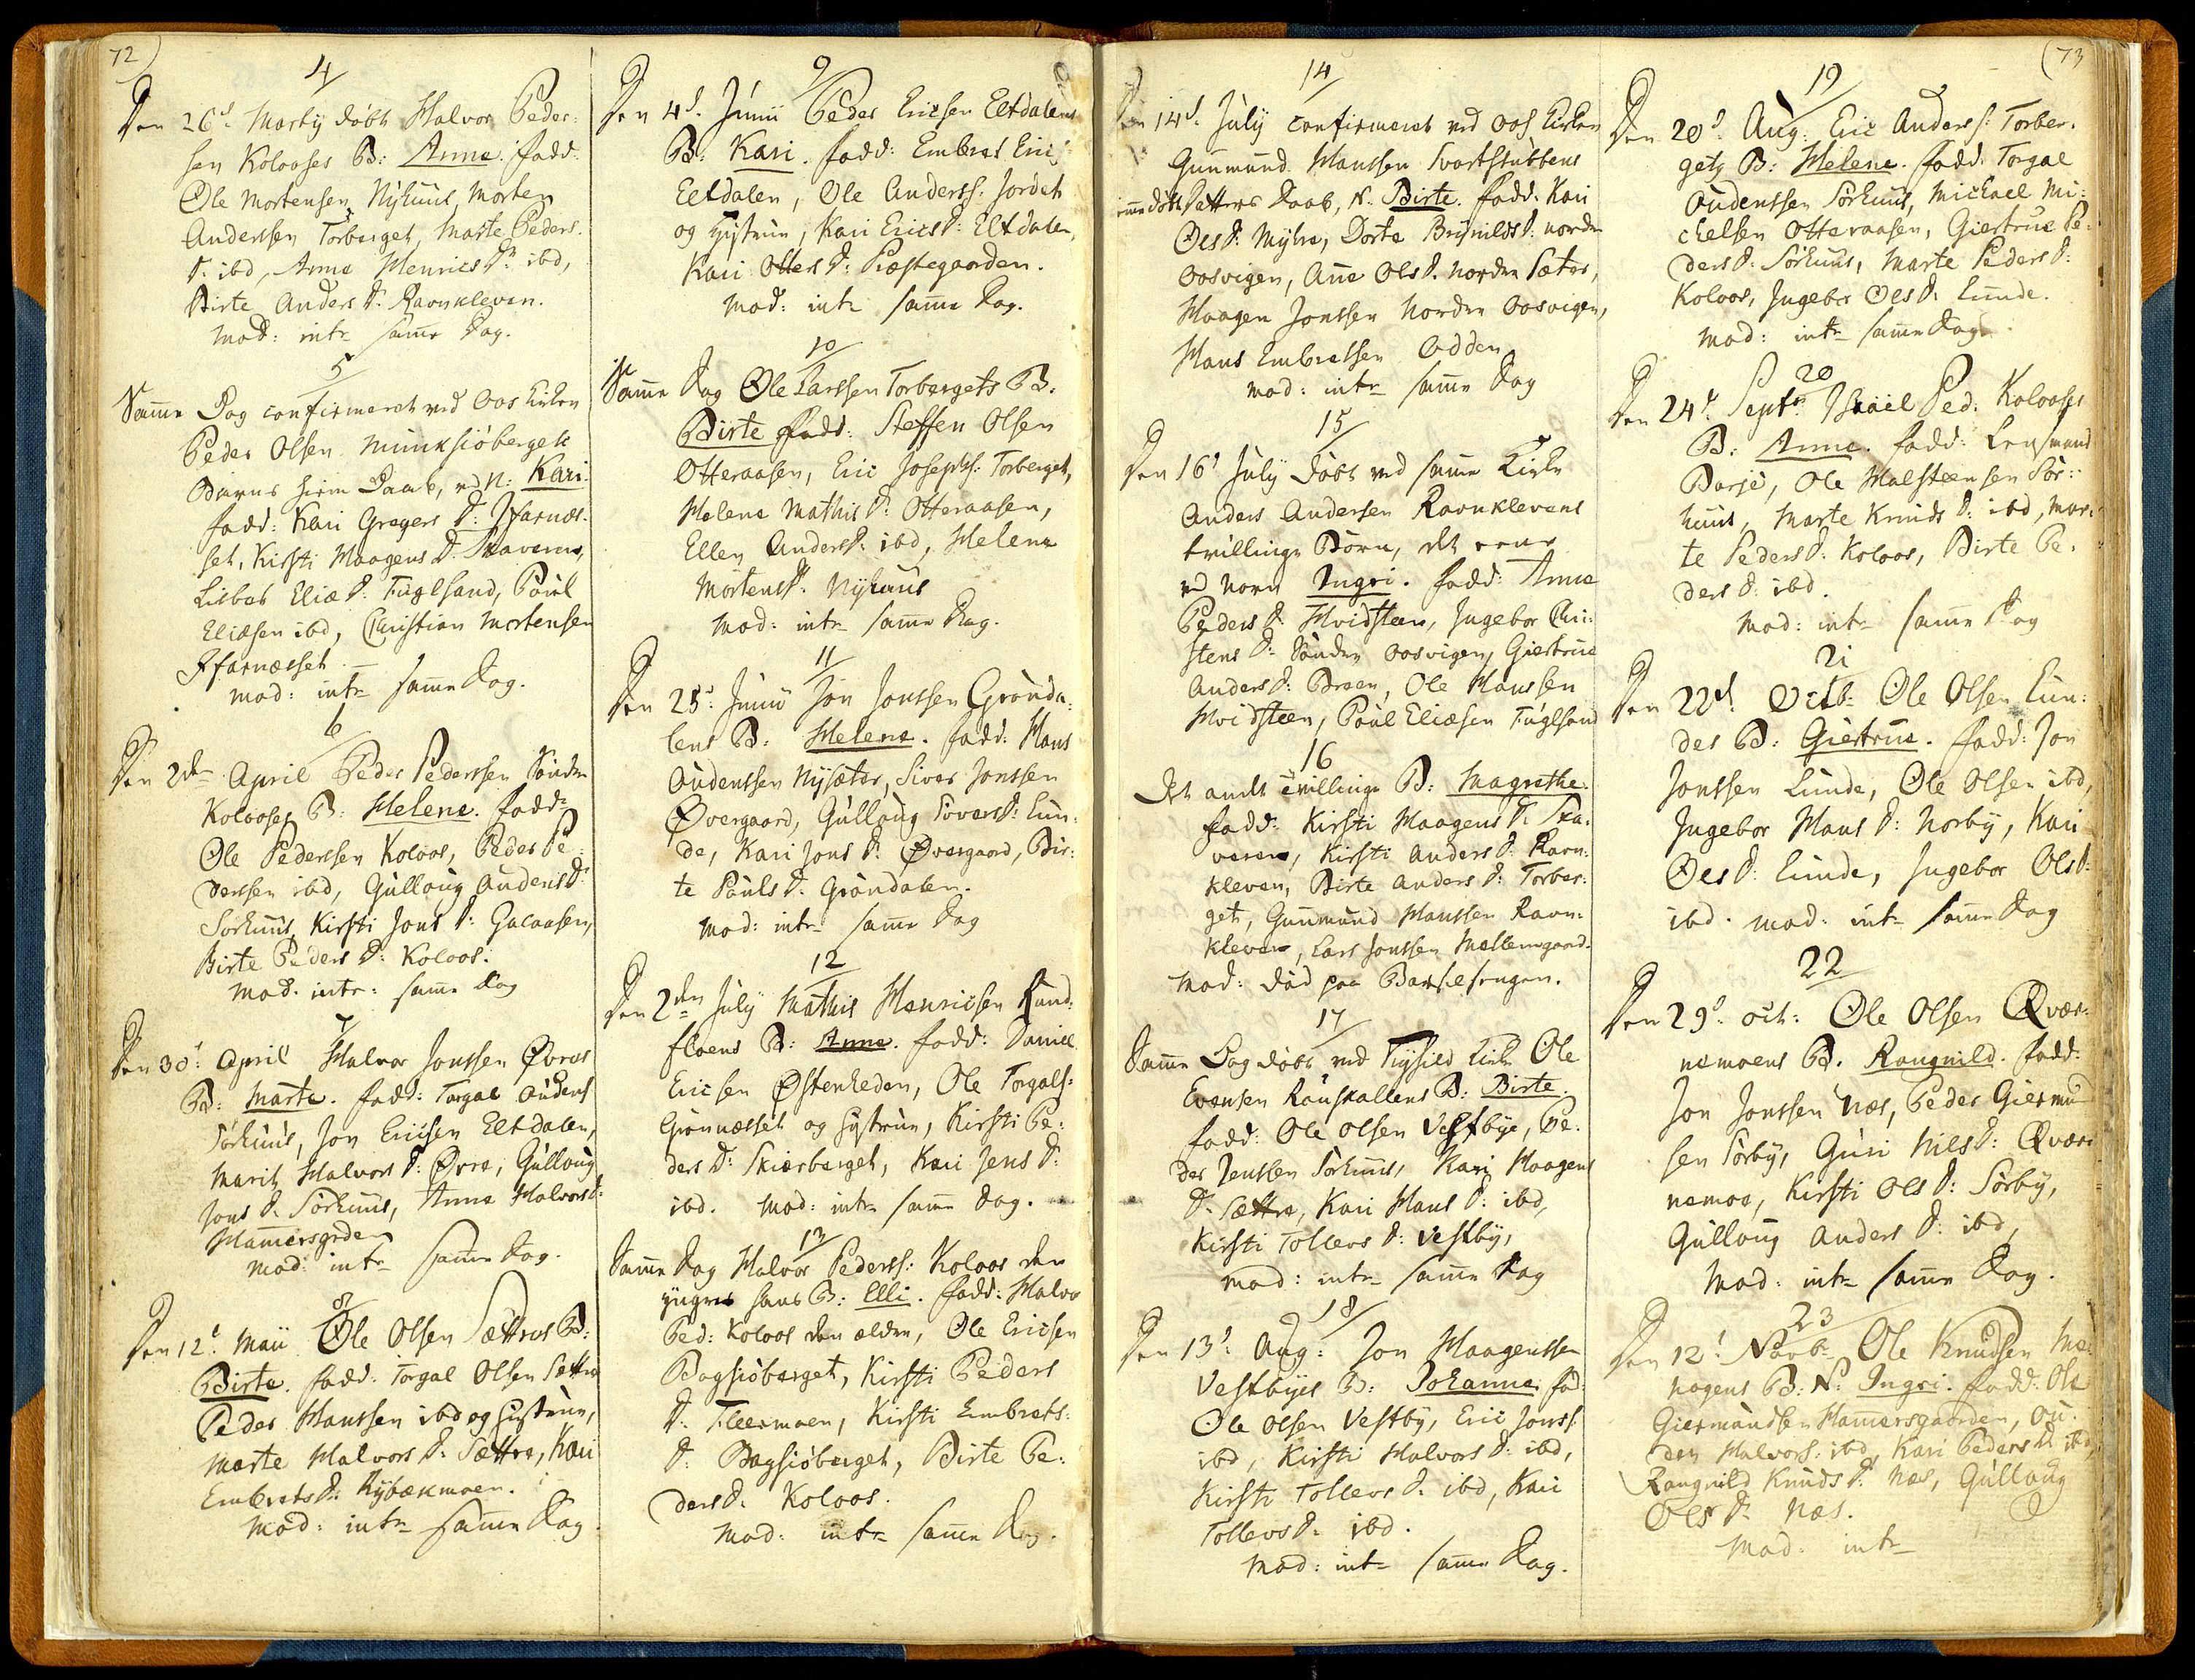 72)
4
Den 26d. Martij döbt Halvor Peder-
sen Kolooses B: Anne. fadd:
Ole Mortensen Nyhuus, Morten
Andersen Torberget, Marte Peders
D: ibd, Anne Henrics D: ibd,
Birte Anders D: Ravnkleven.
Mod: intr. samme Dag.
5
Samme Dag confirmeret ved Oos Kirken
Peder Olsen Munksiöbergets
Barns hiem Daab, ved N: Kari.
fadd: Kari Gregers D: Ifarnæs-
set, Kirsti Haagens D: Skaveren,
Lisbet Eliæ D: Fuglsand, Poúl
Eliæsen ibd, Christian Mortensen
Ifarnæsset.
mod: intr samme Dag.
6
Den 2den April Peder Pedersen Söndre
Kolooses B: Helene. fadd:
Ole Pedersen Koloos, Peder Pe-
dersen ibd, Gulloug Audens D:
Sörhuus, Kirsti Jons D: Galaasen,
Birte Peders D: Koloos.
Mod: intr: samme Dag
7
Den 30d. April Halvor Jonssen Øvres
B: Marte. fadd: Torgal Audens
Sörhuus, Jon Ericsen Eltdalen,
Marit Halvors D: Øvre, Gulloug
Jons D. Sörhuus, Anne Halvors D:
Hamersgrden
Mod: intr samme Dag.
8
Den 12d. Maii Ole Olsen Sættres B:
Birte. fadd: Torgal Olsen Sættre
Peder Hanssen ibd og Hustrue,
Marte Halvors D: Sættre, Kari
Embrets D: Nybækmoen.
Mod: intr samme Dag.
9
Den 4d. Junii Peder Ericsen Eltdalens
B: Kari. fadd: Embret Erics:
Eltdalen, Ole Anderss: Jordet
og Hustrue, Kari Erics D: Eltdalen,
Kari Olless D: Præstegaarden.
Mod: intr samme Dag.
10
Samme Dag Ole Larssen Torbergets B.
Birte fadd: Steffen Olsen
Otteraasen, Eric Josephs: Torberget,
Helene Mathis D: Otteraasen,
Ellen Anders D: ibd, Helene
Mortens D. Nyhuus
Mod: intr samme Dag.
11
Den 25d. Junii Jon Jonssen Grönda-
lens B: Helene. fadd: Hans
Audenssen Nysæter, Siver Jonssen
Øvergaard, Gulloug Sivers D: Lun-
de, Kari Jons D: Øvergaard, Bir-
te Pouls D: Gröndalen.
Mod: intr samme Dag
12
Den 2den July Mathis Henricsen Rund-
floens B: Anne. fadd: Daniel
Ericsen Østenheden, Ole Torgals:
Grönnæsset og Hustrue, Kirsti Pe-
ders D: Skiærberget, Kari Jens D:
ibd. Mod: intr samme Dag.
13
Samme Dag Halvor Peders: Koloos den
yngres hans B: Elli. fadd: Halvor
Ped: Koloos den ældre, Ole Ericsen
Bagsiöberget, Kirsti Peders
D: Fleermoen, Kirsti Embrets:
D: Bagsiöberget, Birte Pe-
ders D: Koloos.
Mod: intr samme Dag.
(73
14
Den 14d. July confirmeret ved Oos Kirken
Gunmund Hanssen Svartstubbens
hiemdöbte Datters Daab, N. Birte. fadd: Kari
Oles D: Myhre, Dorte Brynilds D: nordre
Oosvigen, Anne Ols D. nordre Sæter,
Haagen Jonssen Nordre Oosvigen,
Hans Embretsen Odden
mod: intr samme Dag
15
Den 16d July döbt ved samme Kirke
Anders Andersen Ravnklevens
tvillinge Börn, det eene
ved Navn Ingri. fadd: Anne
Peders D: Hvidsteen, Ingebor Chri-
stens D: Söndre Oosvigen, Giertrue
Anders D: Braen, Ole Hanssen
Hvidsteen, Poúl Eliæsen Fuglsand
16
Det andet tvillinge B: Magrethe.
fadd: Kirsti Haagens D: Ska-
veren, Kirsti Anders D: Ravn-
kleven, Birte Anders D: Torber-
get, Gunmund Hanssen Ravn-
kleven, Lars Jonssen Mællemgaard.
Mod: död paa Barselsengen.
17
Samme Dag döbt ved Trysild Kirke Ole
Evensen Rauskallens B: Birte.
fadd: Ole Olsen Vestbye, Pe-
der Jenssen Sörhuus, Kari Haagens
D: Sættre, Kari Hans D: ibd,
Kirsti Tollevs D: Vestby,
mod: intr samme Dag
18
Den 13d Aug: Jon Haagenssen
Vestbyes B: Johanne. fad:
Ole Olsen Vestby, Eric Jonss:
ibd, Kirsti Halvors D: ibd,
Kirsti Tollevs D. ibd, Kari
Tollevs D: ibd.
Mod: intr samme Dag.
19
Den 20d. Aug: Eric Anderss: Torber-
gets B: Helene. fadd: Torgal
Audenssen Sörhuus, Michael Mi-
chelsen Otteraasen, Giertrue Pe-
ders D: Sörhuus, Marte Peders D:
Koloos, Ingebor Oles D: Lunde.
Mod: intr samme Dag
20
Den 24d. Septr. Israel Ped: Kolooses
B: Anne. fadd: Lensmand
Borje, Ole Halsteensen Sör-
huus, Marte Knuds D: ibd, Mar-
te Peders D: Koloos, Birte Pe-
ders D: ibd.
Mod: intr samme Dag
21
Den 22d. Octbr. Ole Olsen Lun-
des B: Giertrue. fadd: Jon
Jonssen Lunde, Ole Olsen ibd,
Ingebor Hans D: Norby, Kari
Oles D: Lunde, Ingebor Ols D:
ibd. mod: intr samme Dag
22
Den 29d. oct: Ole Olsen Qvær-
nemoens B. Rangnild. fadd:
Jon Jonssen Næs, Peder Giermund
sen Sörby, Guri Nils D: Qvær-
nemoe, Kirsti Ols D: Sörby,
Gulloug Anders D: ibd,
Mod: intr samme Dag.
23
Den 12d. Novbr. Ole Knudsen
B: N: Ingri. fadd: Ole
Giermundsen Hamersgaarden, Au-
den Halvors: ibd, Kari Peders D: ibd,
Rangnild Knuds D: Næs, Gulloug
Ols D: Næs.
Mod: intr